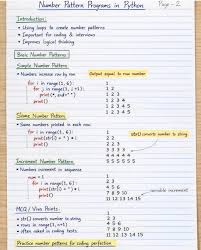 Number Pattern Programs in Python
Page - 2
Introduction:
• Using loops to create number patterns
• Important for coding & interviews
• Improves logical thinking
Basic Number Patterns
Simple Number Pattern
• Numbers increase row by row
Output equal to row number
for i in range(1, 6):
1
1 2
1 2 3
1 2 3 4
1 2 3 4 5
print()
Same Number Pattern
• Same numbers printed in each row
for i in range(1, 6):
print(str(i) * i)
1
2 2
3 3 3
str() converts number to string
Increment Number Pattern
• Numbers increment in sequence
num = 1
for i in range(1, 6):
print()
1
2 3
4 5 6
7 8 9 10
11 12 13 14 15
variable increment
MCQ / Viva Points
• str() converts number to string
• often asked in coding tests
Practice number patterns for coding perfection